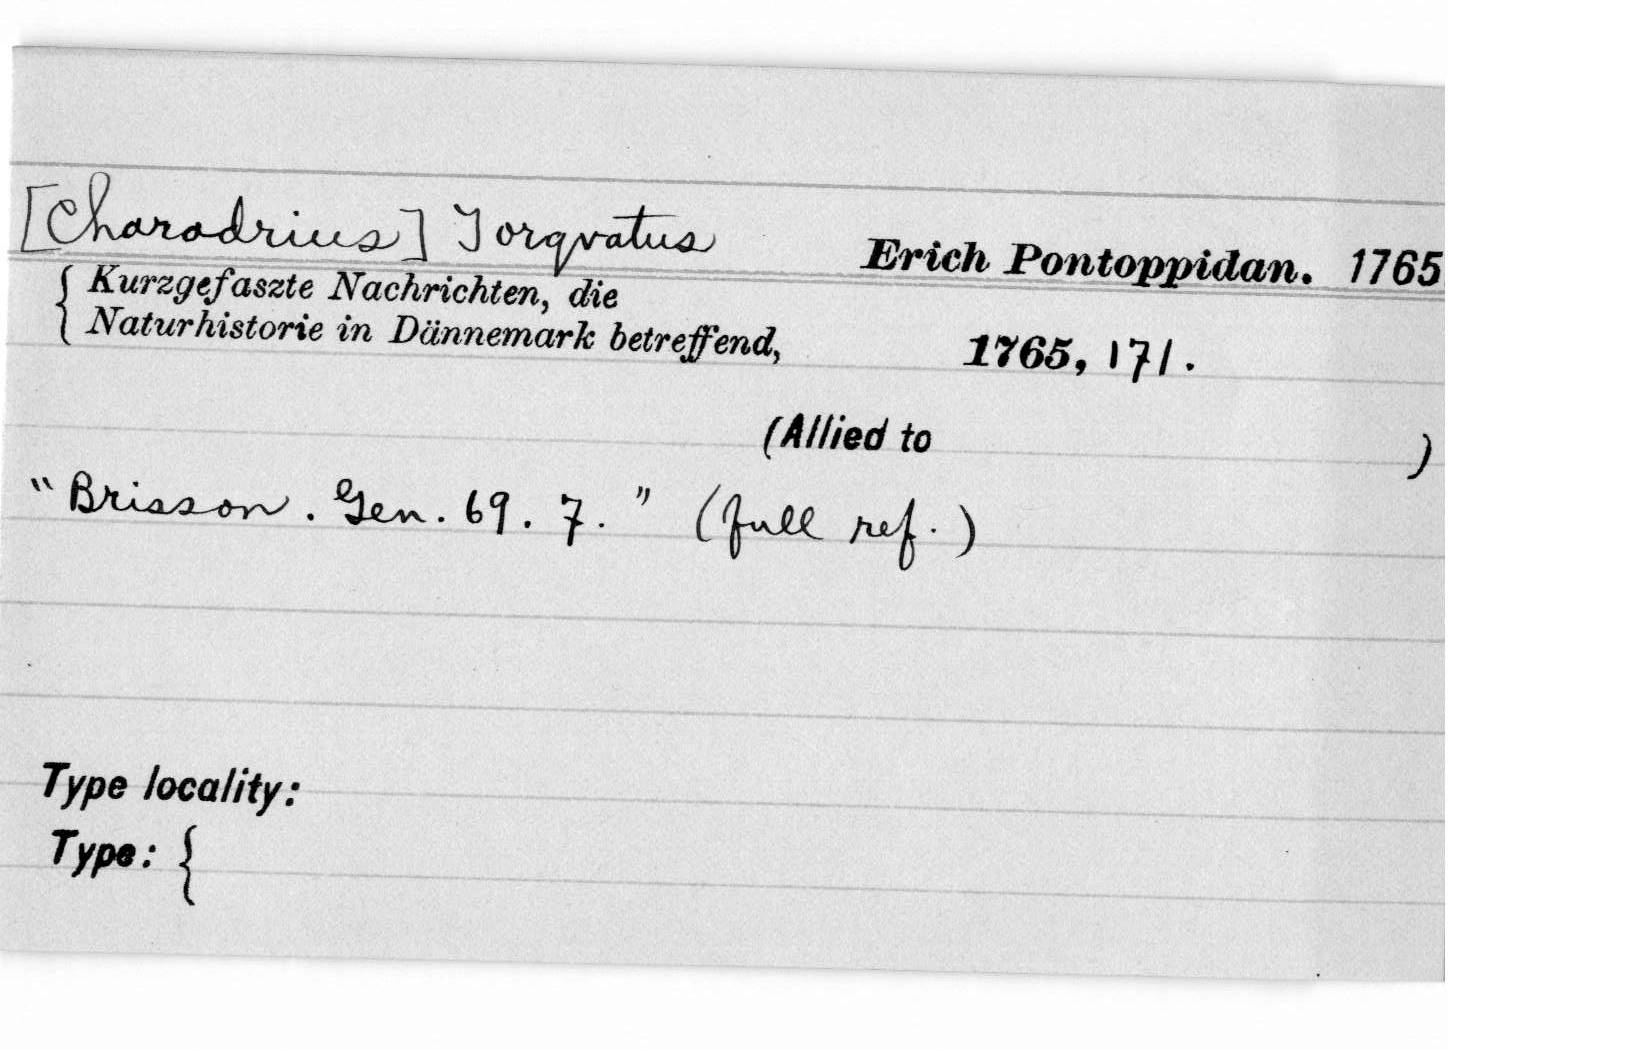 [Charadrius] Torqvatus Erich Pontoppidan. 1765
{ Kurzgefaszte Nachrichten, die
Naturhistorie in Dännemark betreffend, 1765, 171.
(Allied to )
"Brisson. Gen. 69. 7." (full ref.)
Type locality:
Type: {